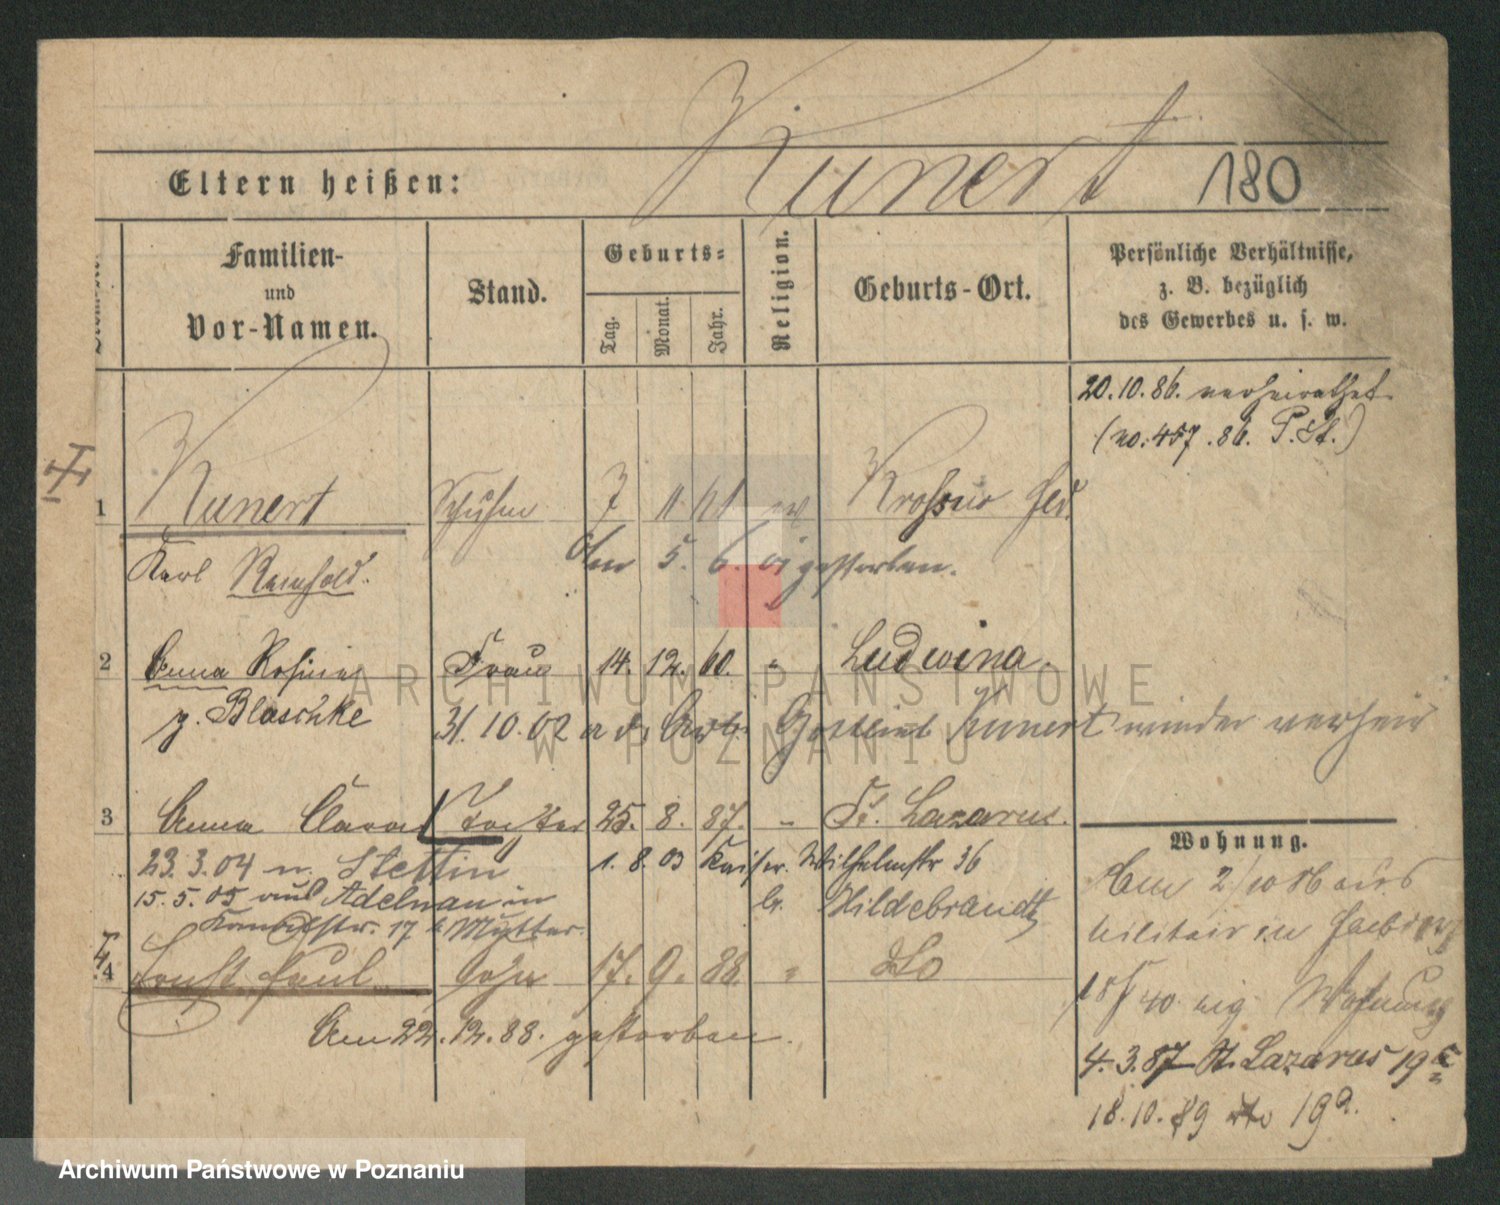 Kunert 180
Eltern heißen:
Familien-
und
Vor-Namen.
Stand.
Geburts-
Tag.
Monat.
Jahr.
Religion.
Geburts-Ort.
Persönliche Verhältnisse,
z. B. bezüglich
des Gewerbes u. s. w.
20.10.86. verheirathet
(no. 457.86. P. St.)
1 Kunert 7 11 61
Karl Reinhold. 5. 6. 01 gestorben.
2 Anna Rosina Frau 14. 12. 60. " Ludwina.
g. Blaschke 31.10.02 Gottlieb Kunert wieder verheir
3 Anna Clara Tochter 25. 8. 87. " St. Lazarus.
23.3.04 n. Stettin 1. 8. 03 Kaiser Wilhelmstr 36
15.5.05 aus Adelnau in b. Hildebrandt
17 b Mutter.
4 Ernst Paul Sohn 17. 9. 88. " do
Am 22.12.88. gestorben.
Wohnung.
2/10 86 aus
Militair in
Wohnung
4.3.87 St. Lazarus 19
18.10.89 dto 19a.
ARCHIWUM PAŃSTWOWE
W POZNANIU
Archiwum Państwowe w Poznaniu